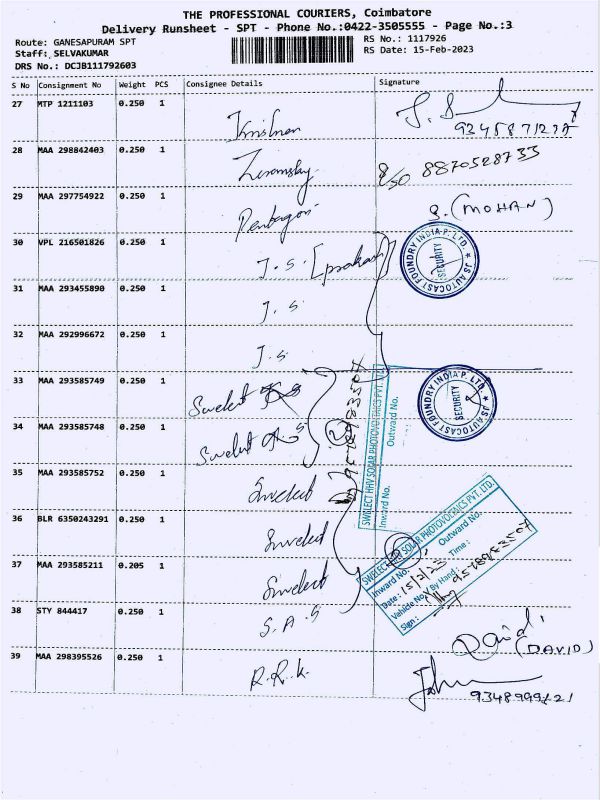 THE PROFESSIONAL COURIERS, Coimbatore
Delivery Runsheet - SPT - Phone No.:0422-3505555 - Page No.:3
Route: GANESAPURAM SPT
Staff: SELVAKUMAR
DRS No.: DCJB111792603
RS No.: 1117926
RS Date: 15-Feb-2023
S No Consignment No Weight PCS Consignee Details Signature
27 MTP 1211103 0.250 1
28 MAA 298842403 0.250 1 8870528733
29 MAA 297754922 0.250 1 Pentagon S. (MOHAN)
30 VPL 216501826 0.250 1 J.S [prakash]
JS AUTOCAST FOUNDRY INDIA P. LTD. ★
SECURITY
31 MAA 293455890 0.250 1 J.S
32 MAA 292996672 0.250 1 J.S
33 MAA 293585749 0.250 1 Swelect
JS AUTOCAST FOUNDRY INDIA P. LTD. ★
SECURITY
34 MAA 293585748 0.250 1 Swelect
SWELECT HHV SOLAR PHOTOVOLTAICS PVT. LTD.
Inward No. Outward No.
35 MAA 293585752 0.250 1 Swelect
36 BLR 6350243291 0.250 1 Swelect
37 MAA 293585211 0.205 1 Swelect
SWELECT HHV SOLAR PHOTOVOLTAICS PVT. LTD.
Inward No. Outward No.
Date: 15/2/23 Time:
Vehicle No / By Hand:
Sign:
38 STY 844417 0.250 1 S.A.S David (DAVID)
39 MAA 298395526 0.250 1 R.R.K. John